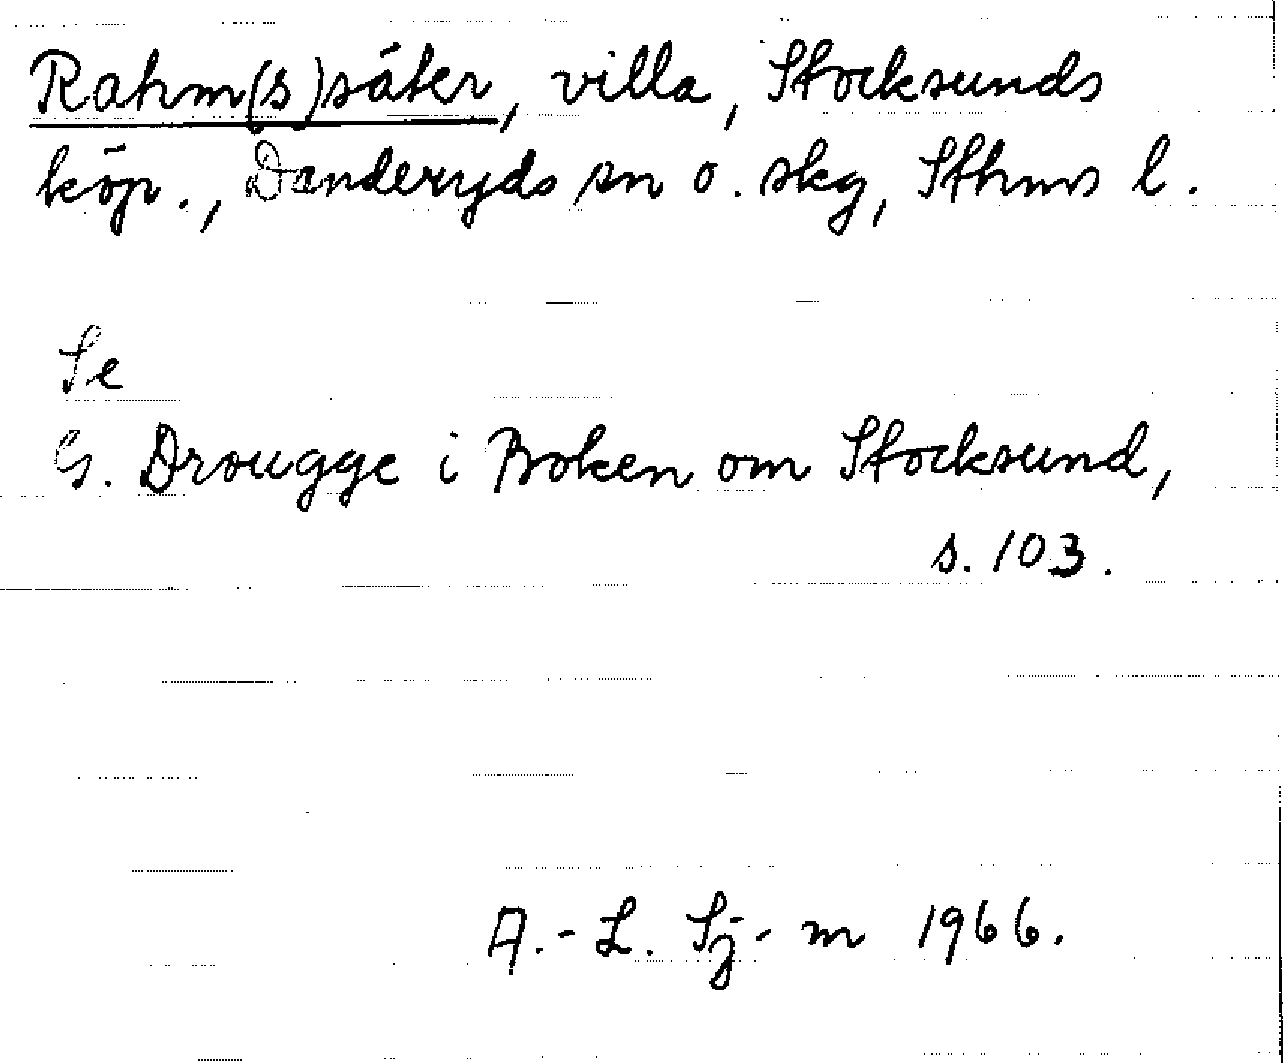 Rahm(s)säter, villa, Stocksunds
köp., Danderyds sn o. skg, Sthms l.
Se
G. Drougge i Boken om Stocksund,
s. 103.
A.-L. Sj-m 1966.